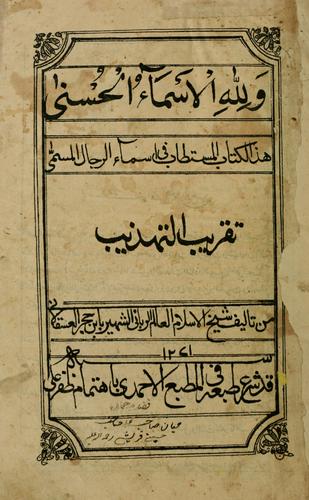 ولله الاسماء الحسنى
هذا الكتاب المستطاب فى اسماء الرجال المسمى
تقريب التهذيب
من تاليف شيخ الاسلام العالم الربانى الشهير بابن حجر العسقلانى
١٢٧١
قد شرع طبعه فى المطبع الاحمدى باهتمام ظفر على